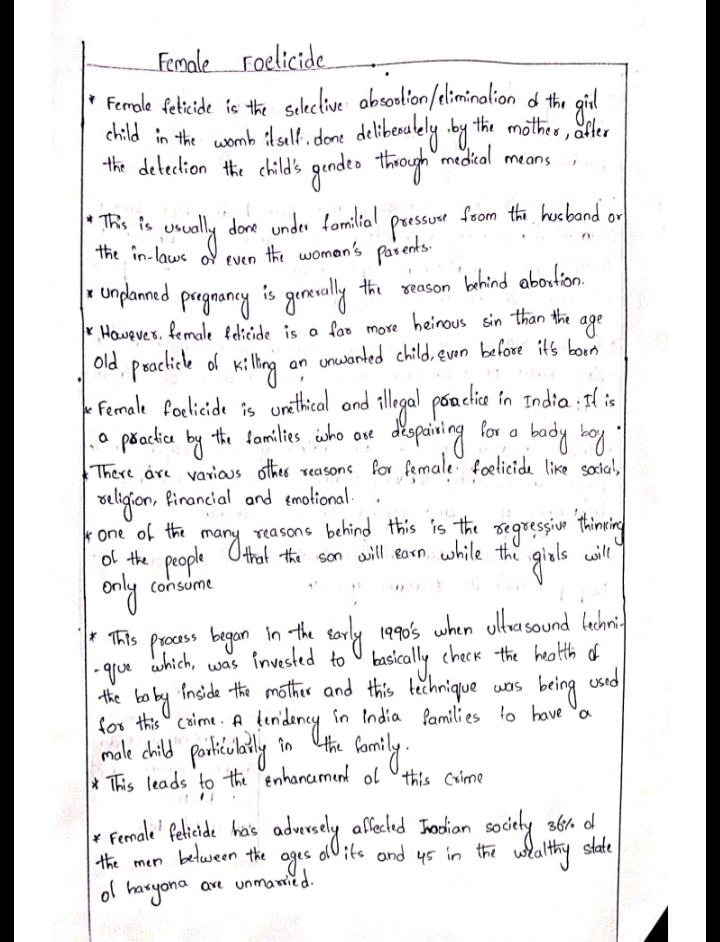 Female Foeticide
* Female feticide is the selective absootion/elimination of the girl
child in the womb itself, done deliberately by the mother, after
the detection the child's gender through medical means
* This is usually done under familial pressure from the husband or
the in-laws or even the woman's parents.
* unplanned pregnancy is generally the reason behind abortion.
* However, female feticide is a far more heinous sin than the age
old practicle of killing an unwanted child, even before it's born
* Female foeticide is unethical and illegal practice in India. It is
a practice by the families who are despairing for a bady boy.
* There are various other reasons for female foeticide like social,
religion, financial and emotional.
* one of the many reasons behind this is the regressive thinking
of the people that the son will earn while the girls will
only consume
* This process began in the early 1990's when ultrasound techni-
-que which, was invested to basically check the health of
the baby inside the mother and this technique was being used
for this crime. A tendency in india families to have a
male child particularly in the family.
* This leads to the enhancement of this crime
* Female feticide has adversely affected Indian society 36% of
the men between the ages of its and 45 in the wealthy state
of haryona are unmarried.